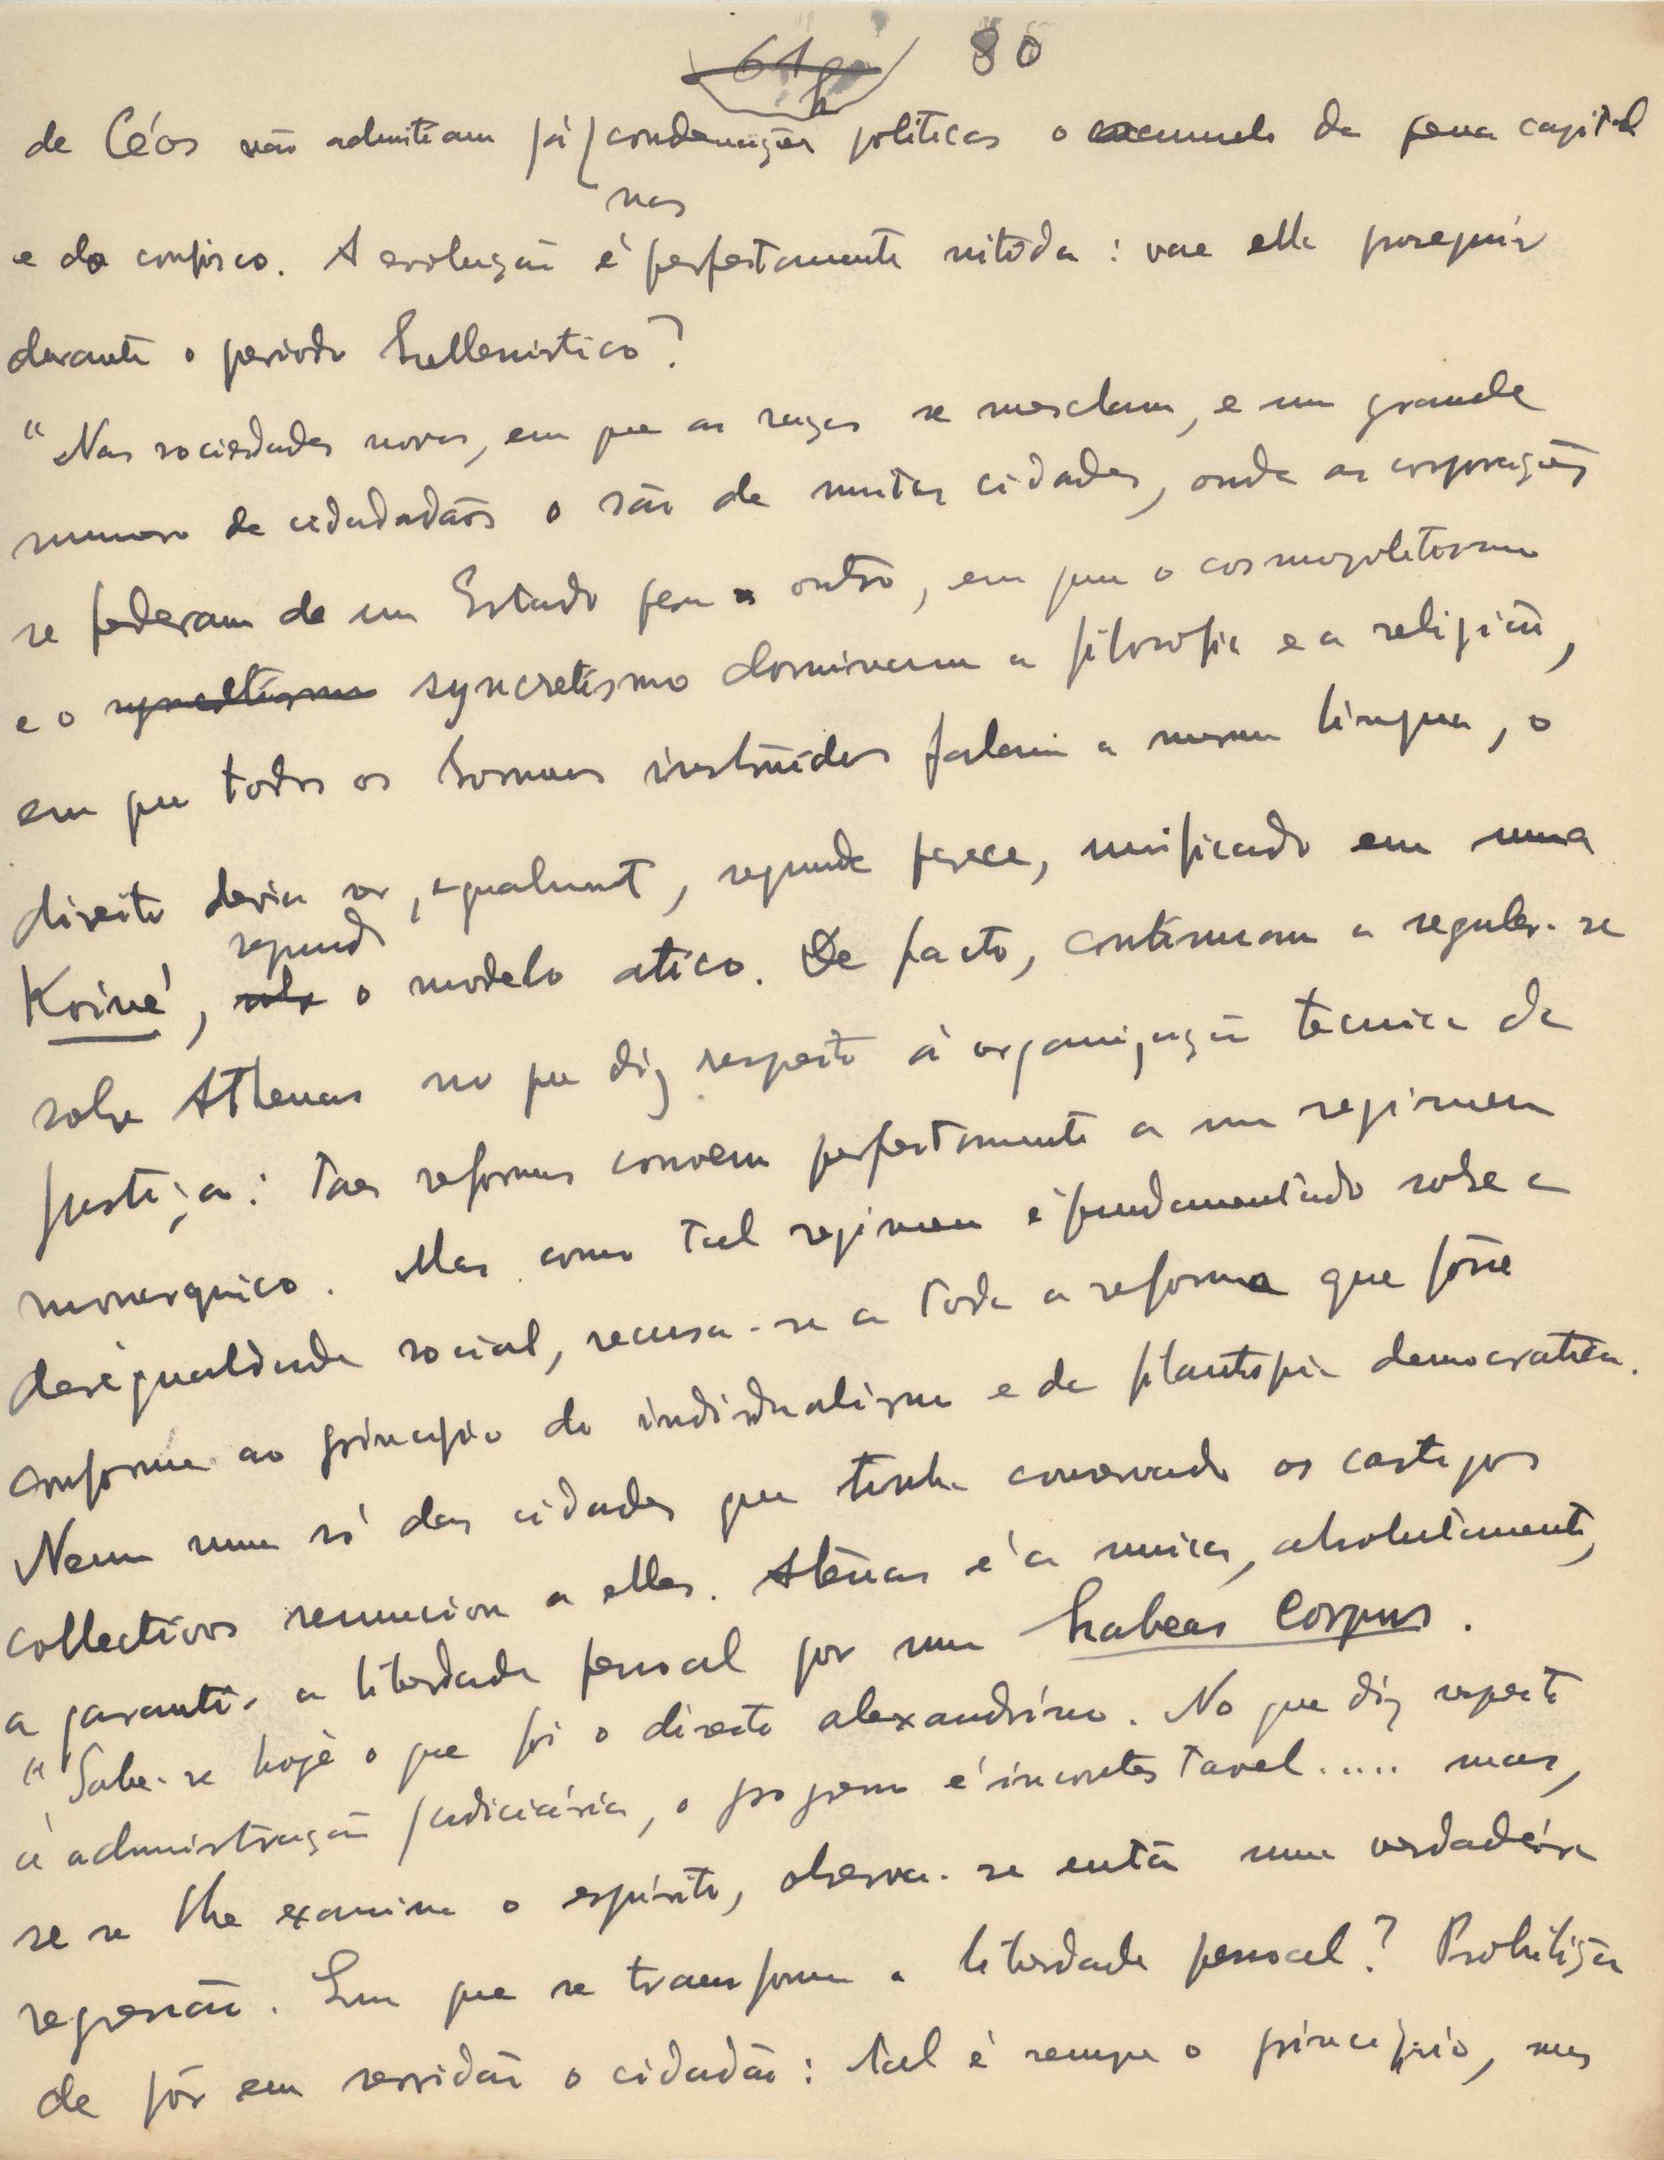 61 80
de Céos não admitiam já nas condemnações politicas o accumulo da pena capital
e do confisco. A evolução é perfeitamente nitida: vae ella proseguir
durante o periodo hellenistico?
"Nas sociedades novas, em que as raças se mesclam, e um grande
numero de cidadadãos o são de muitas cidades, onde as corporações
se federam de um Estado pera outro, em que o cosmopolitismo
e o syncretismo dominam a filosofia e a religião,
em que todos os homens instruidos falam a mesma lingua, o
direito devia ser, egualment, segundo parece, unificado em uma
Koiné, segundo o modelo atico. De facto, continuam a regular-se
sobre Athenas no que diz respeito á organização technica da
justiça: taes reformas convem perfeitamente a um regimen
monarquico. Mas como tal regimen é fundamentado sobre a
desegualdade social, recusa-se a toda a reforma que fosse
conforme ao principio do individualismo e da filantropia democratica.
Nem uma só das cidades que tinha conservado os castigos
collectivos renunciou a elles. Atenas é a unica, absolutamente,
a garantir a liberdade pessoal por um habeas corpus.
"Sabe-se hoje o que foi o direito alexandrino. No que diz respeito
á administração judiciária, o progresso é incontestavel..... mas,
se se lhe examina o espirito, observa-se então uma verdadeira
regressão. Em que se transforma a liberdade pessoal? Prohibição
de pôr em servidão o cidadão: tal é sempre o principio, mas